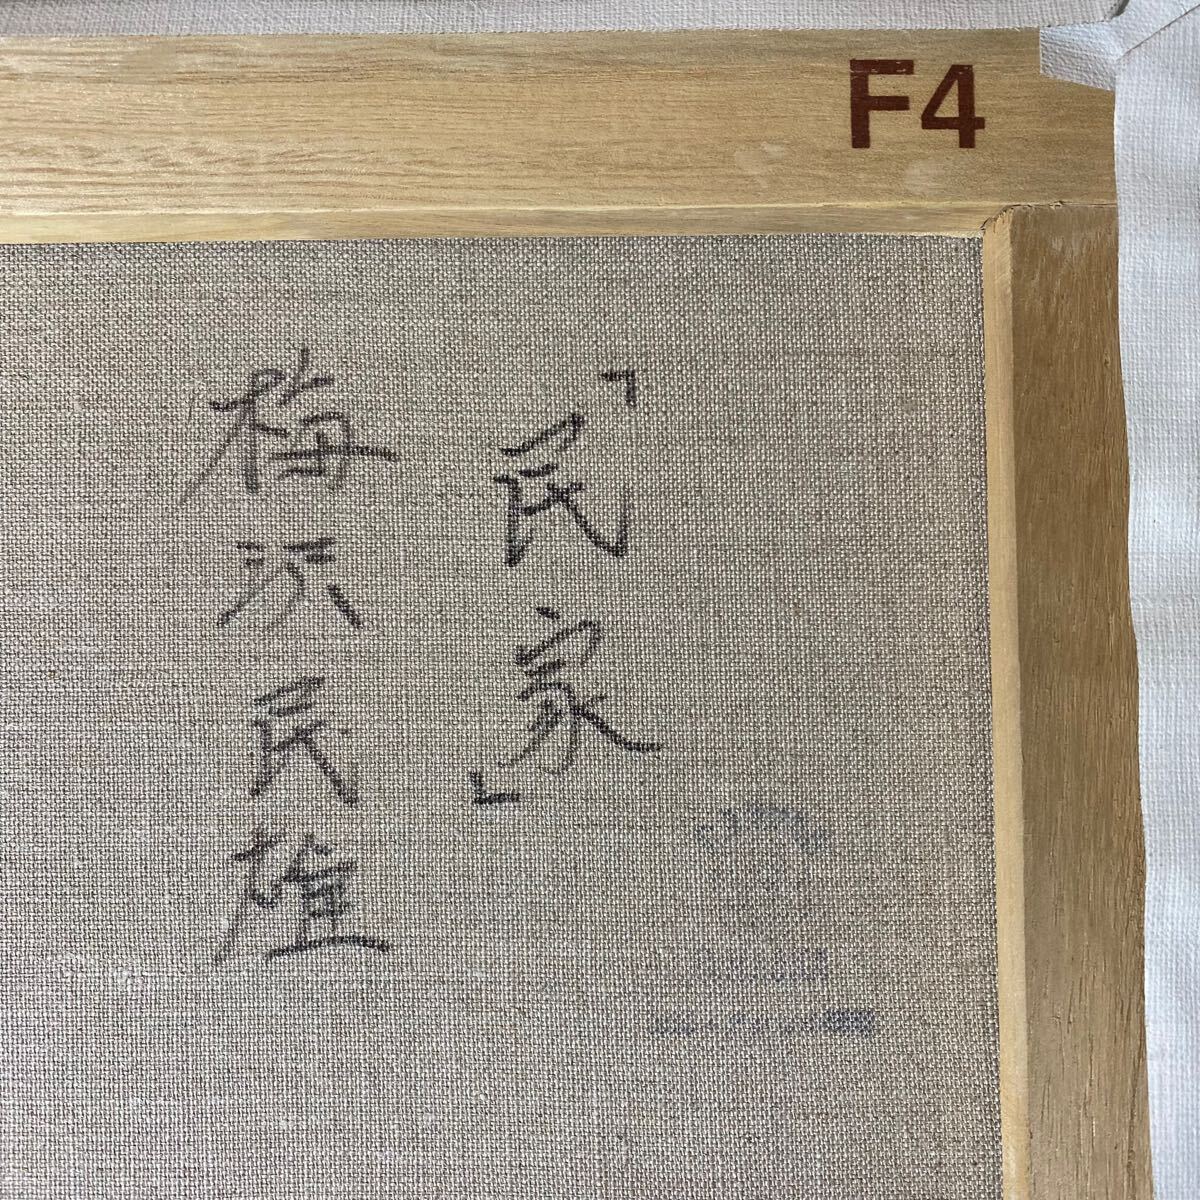 F4
「民家」
梅沢民雄